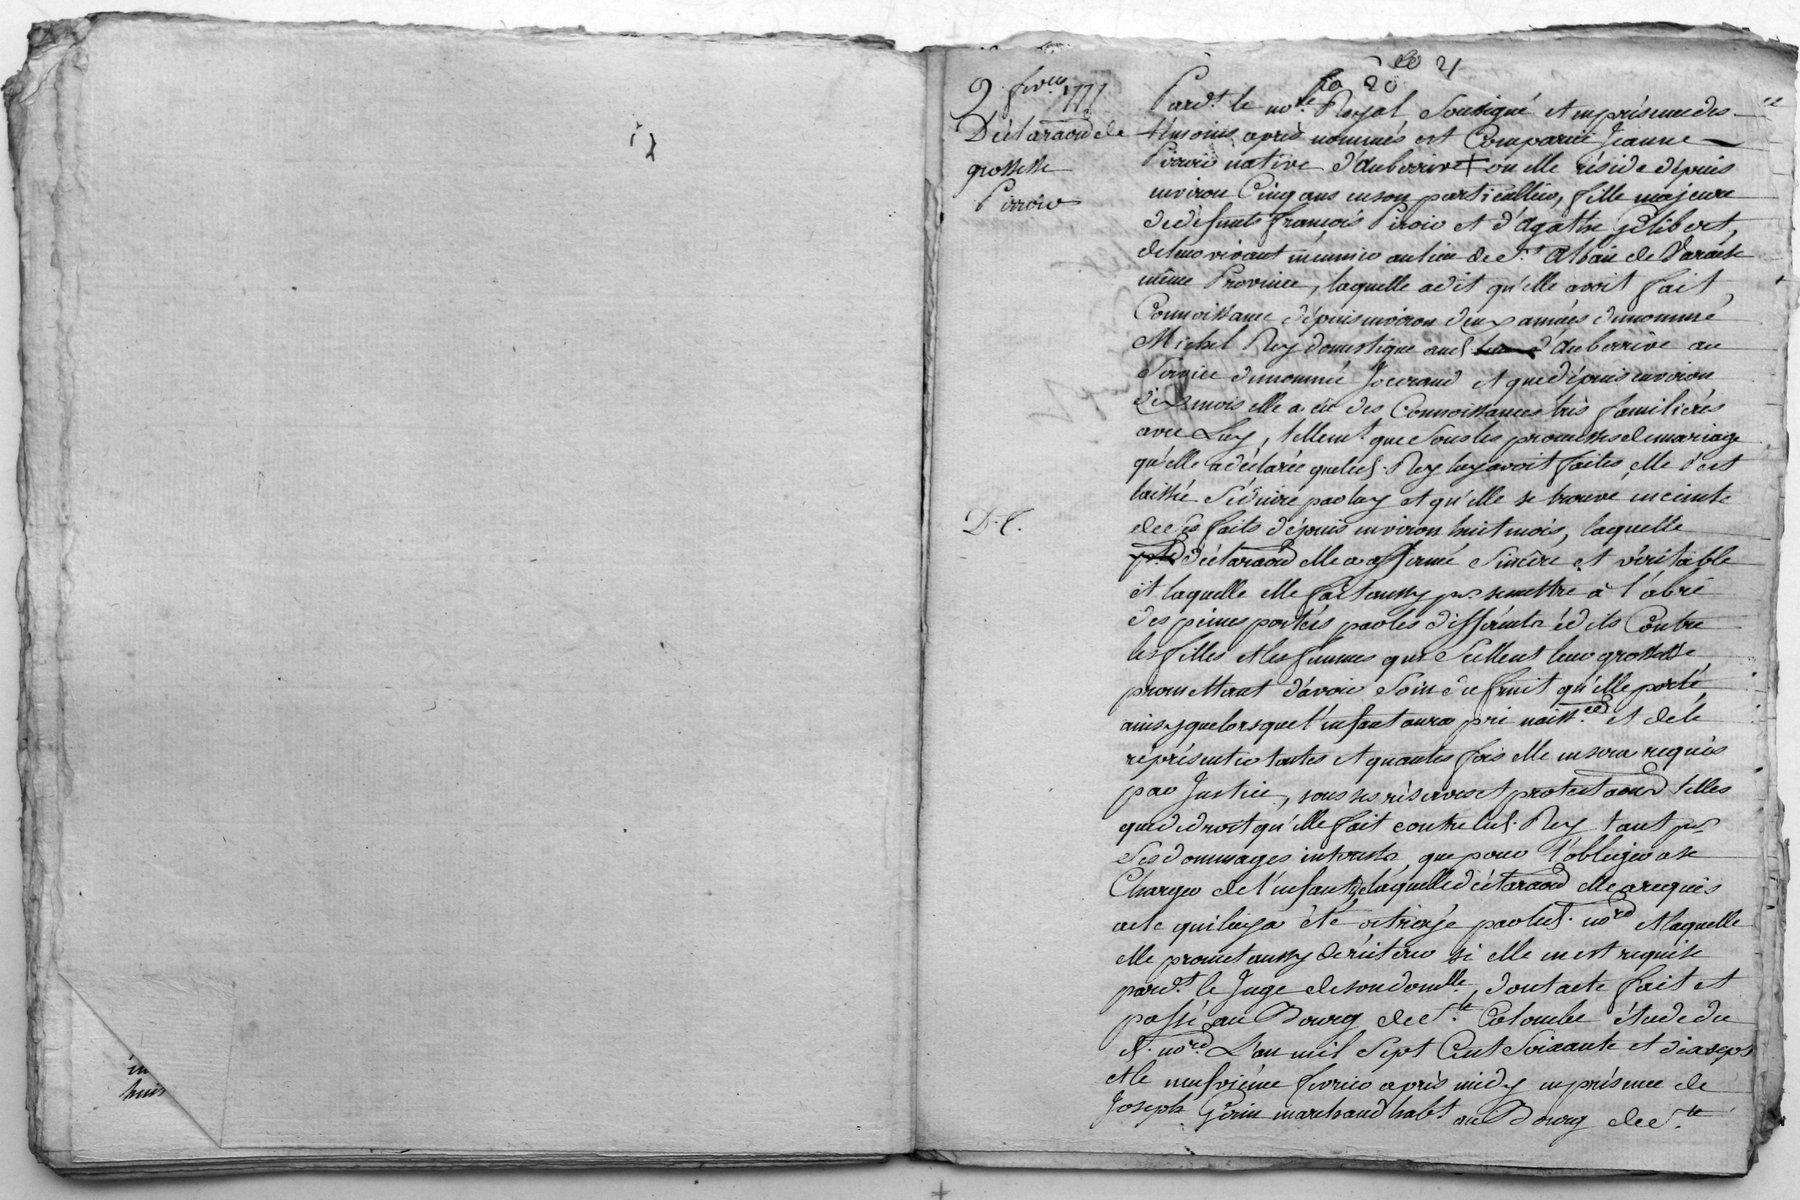 in
huit
fo 20 21
9 fevr. 1777
Déclaraon de
grossesse
Pirroio
D. C.
Pardt le nore Royal Soussigné et en présence des
témoins après nommés est Comparüe Jeanne
native d'auberrive + ou elle réside depuis
environ Cinq ans en son particullier, fille majeure
de défunts françois et d'Agathe Gelibert,
de leur vivant au lieu de St Alban de Varaise
même Province, laquelle a dit qu'elle avoit fait
Connoissance depuis environ deux années du nommé
Michel Rey domestique aud. d'auberrive au
Service du nommé Jourand et que depuis environ
dix mois elle a eu des Connoissances très familières
avec Luy, tellemt que Sous les promesses de mariage
qu'elle a déclarée que led. Rey luy avoit faites, elle s'est
laissée Séduire par luy et qu'elle se trouve enceinte
de Ses faits depuis environ huit mois, laquelle
déclaraon elle a affirmé Sincère et véritable
et laquelle elle fait aussy pr. se mettre à l'abri
des peines portées par les différents édits Contre
les filles et les femmes qui Scellent leur grossesse
promettant d'avoir Soin du fruit qu'elle porte
ainsy que lorsque l'enfant aura pri naissce et de le
représenter toutes et quantes fois elle en sera requis
par Justice, sous ses réserves et protestaons telles
que de droit qu'elle fait contre led. Rey tant pr
Ses dommages interests, que pour l'obliger a se
Charger de l'enfant, de laquelle déclaraon elle a requis
acte qui luy a été octroyé par led. nore et laquelle
elle promet aussy de réitérer si elle en est requise
pardt le Juge de son domlle, dont acte fait et
passé au Bourg de Ste Colombe étude du
d. nore L'an mil Sept Cent Soixante et dix sept
et le neufvième fevrier après midy en présence de
Joseph Gérin marchand habt au Bourg de Ste